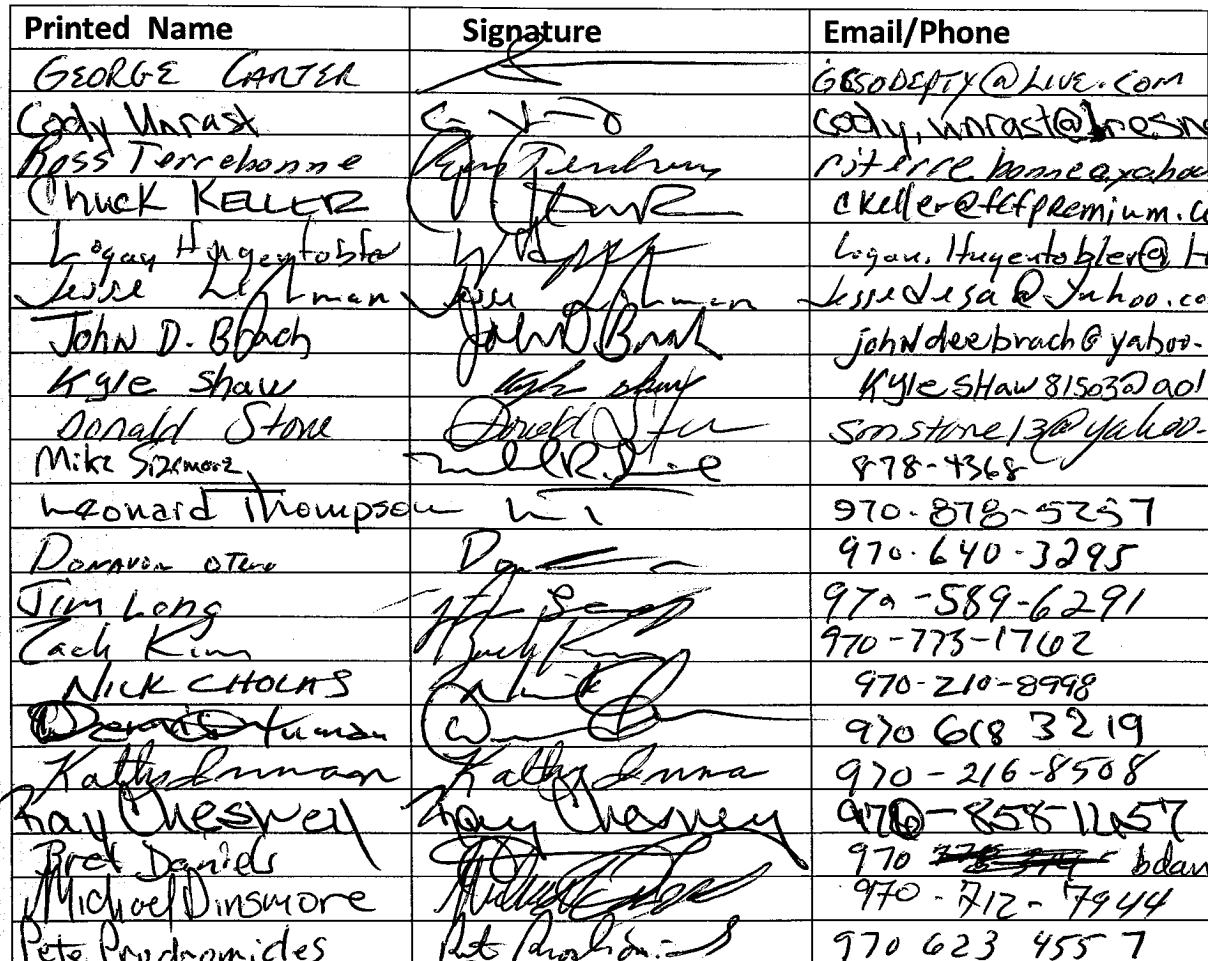 Printed Name Signature Email/Phone
GEORGE CARTER GCSODEPTY@LIVE.COM
Cody Unrast cody.unrast@
Ross Terrebonne rjterrebonne@yahoo
Chuck KELLER ckeller@fcfpremium.c
Logan Hugentobler Logan.Hugentobler@H
Jesse Lishman Jesse Lishman jessedesa@yahoo.co
John D. Brach John D. Brach johndeebrach@yahoo.
Kyle Shaw Kyle Shaw KyleSHaw81503@aol
Donald Stone Donald Stone smstone13@yahoo.
Mike Sizemore 878-4368
Leonard Thompson L T 970-878-5257
Donavon Otero 970-640-3295
Jim Long 970-589-6291
Zach Kim Zach Kim 970-773-1762
NICK CHOLAS Nick 970-210-8998
970 618 3219
Kathy Inman Kathy Inma 970-216-8508
Ray Cheswell Ray 970-858-1657
Bret Daniels 970 bdan
Michael Dinsmore 970-712-7944
Pete Prodromides 970 623 4557